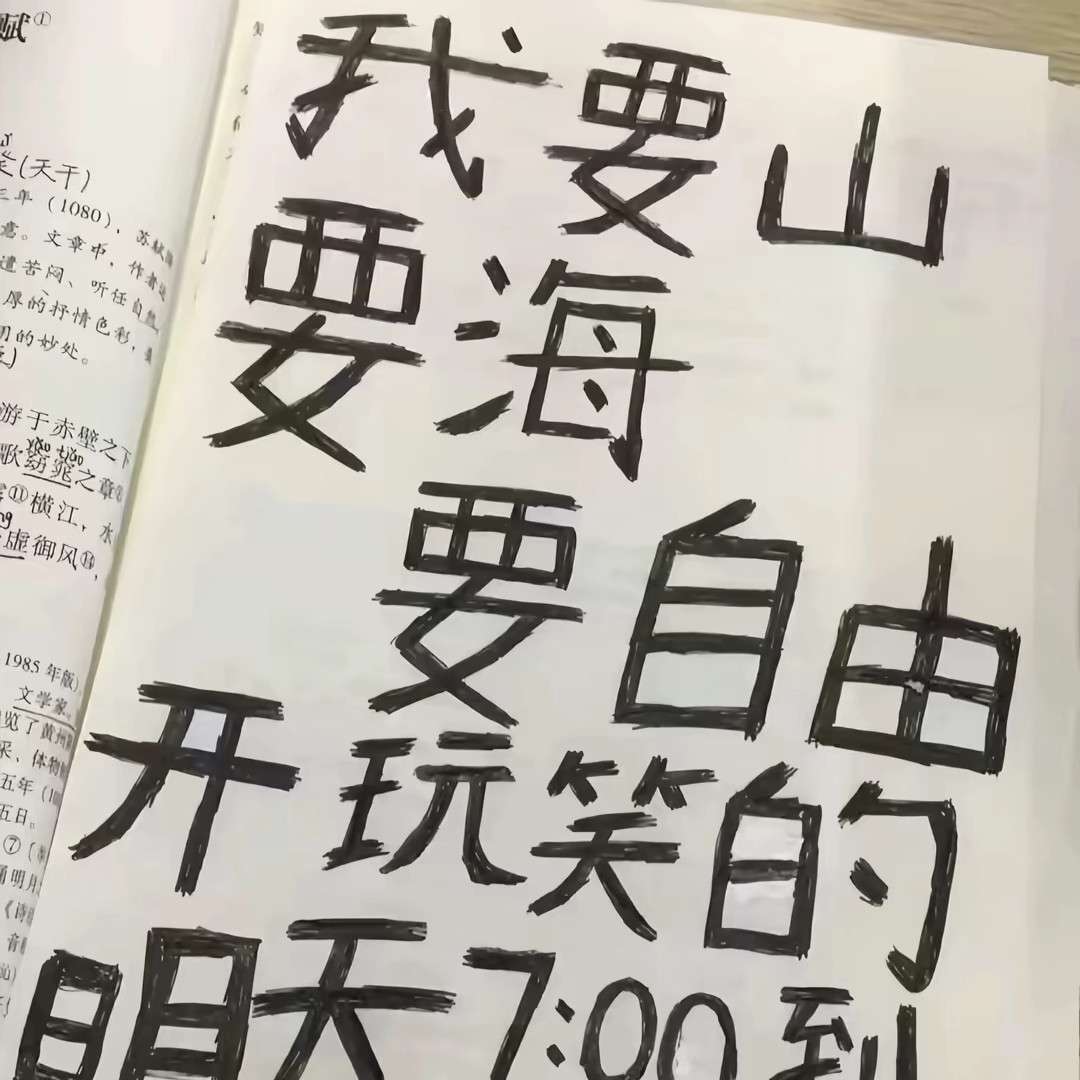 赋①
(天干)
三年（1080），苏轼
意。文章中，作者
遣苦闷、听任自然，
厚的抒情色彩，
的妙处。
游于赤壁之下
yǎo tiǎo
歌窈窕之章
⑪横江，水
虚御风⑭，
1985年版)
文学家
览了黄州
采、体物
五年（1
五日。
⑦〔
诵明月
《诗
音
我要山
要海
要自由
开玩笑的
明天7:00到